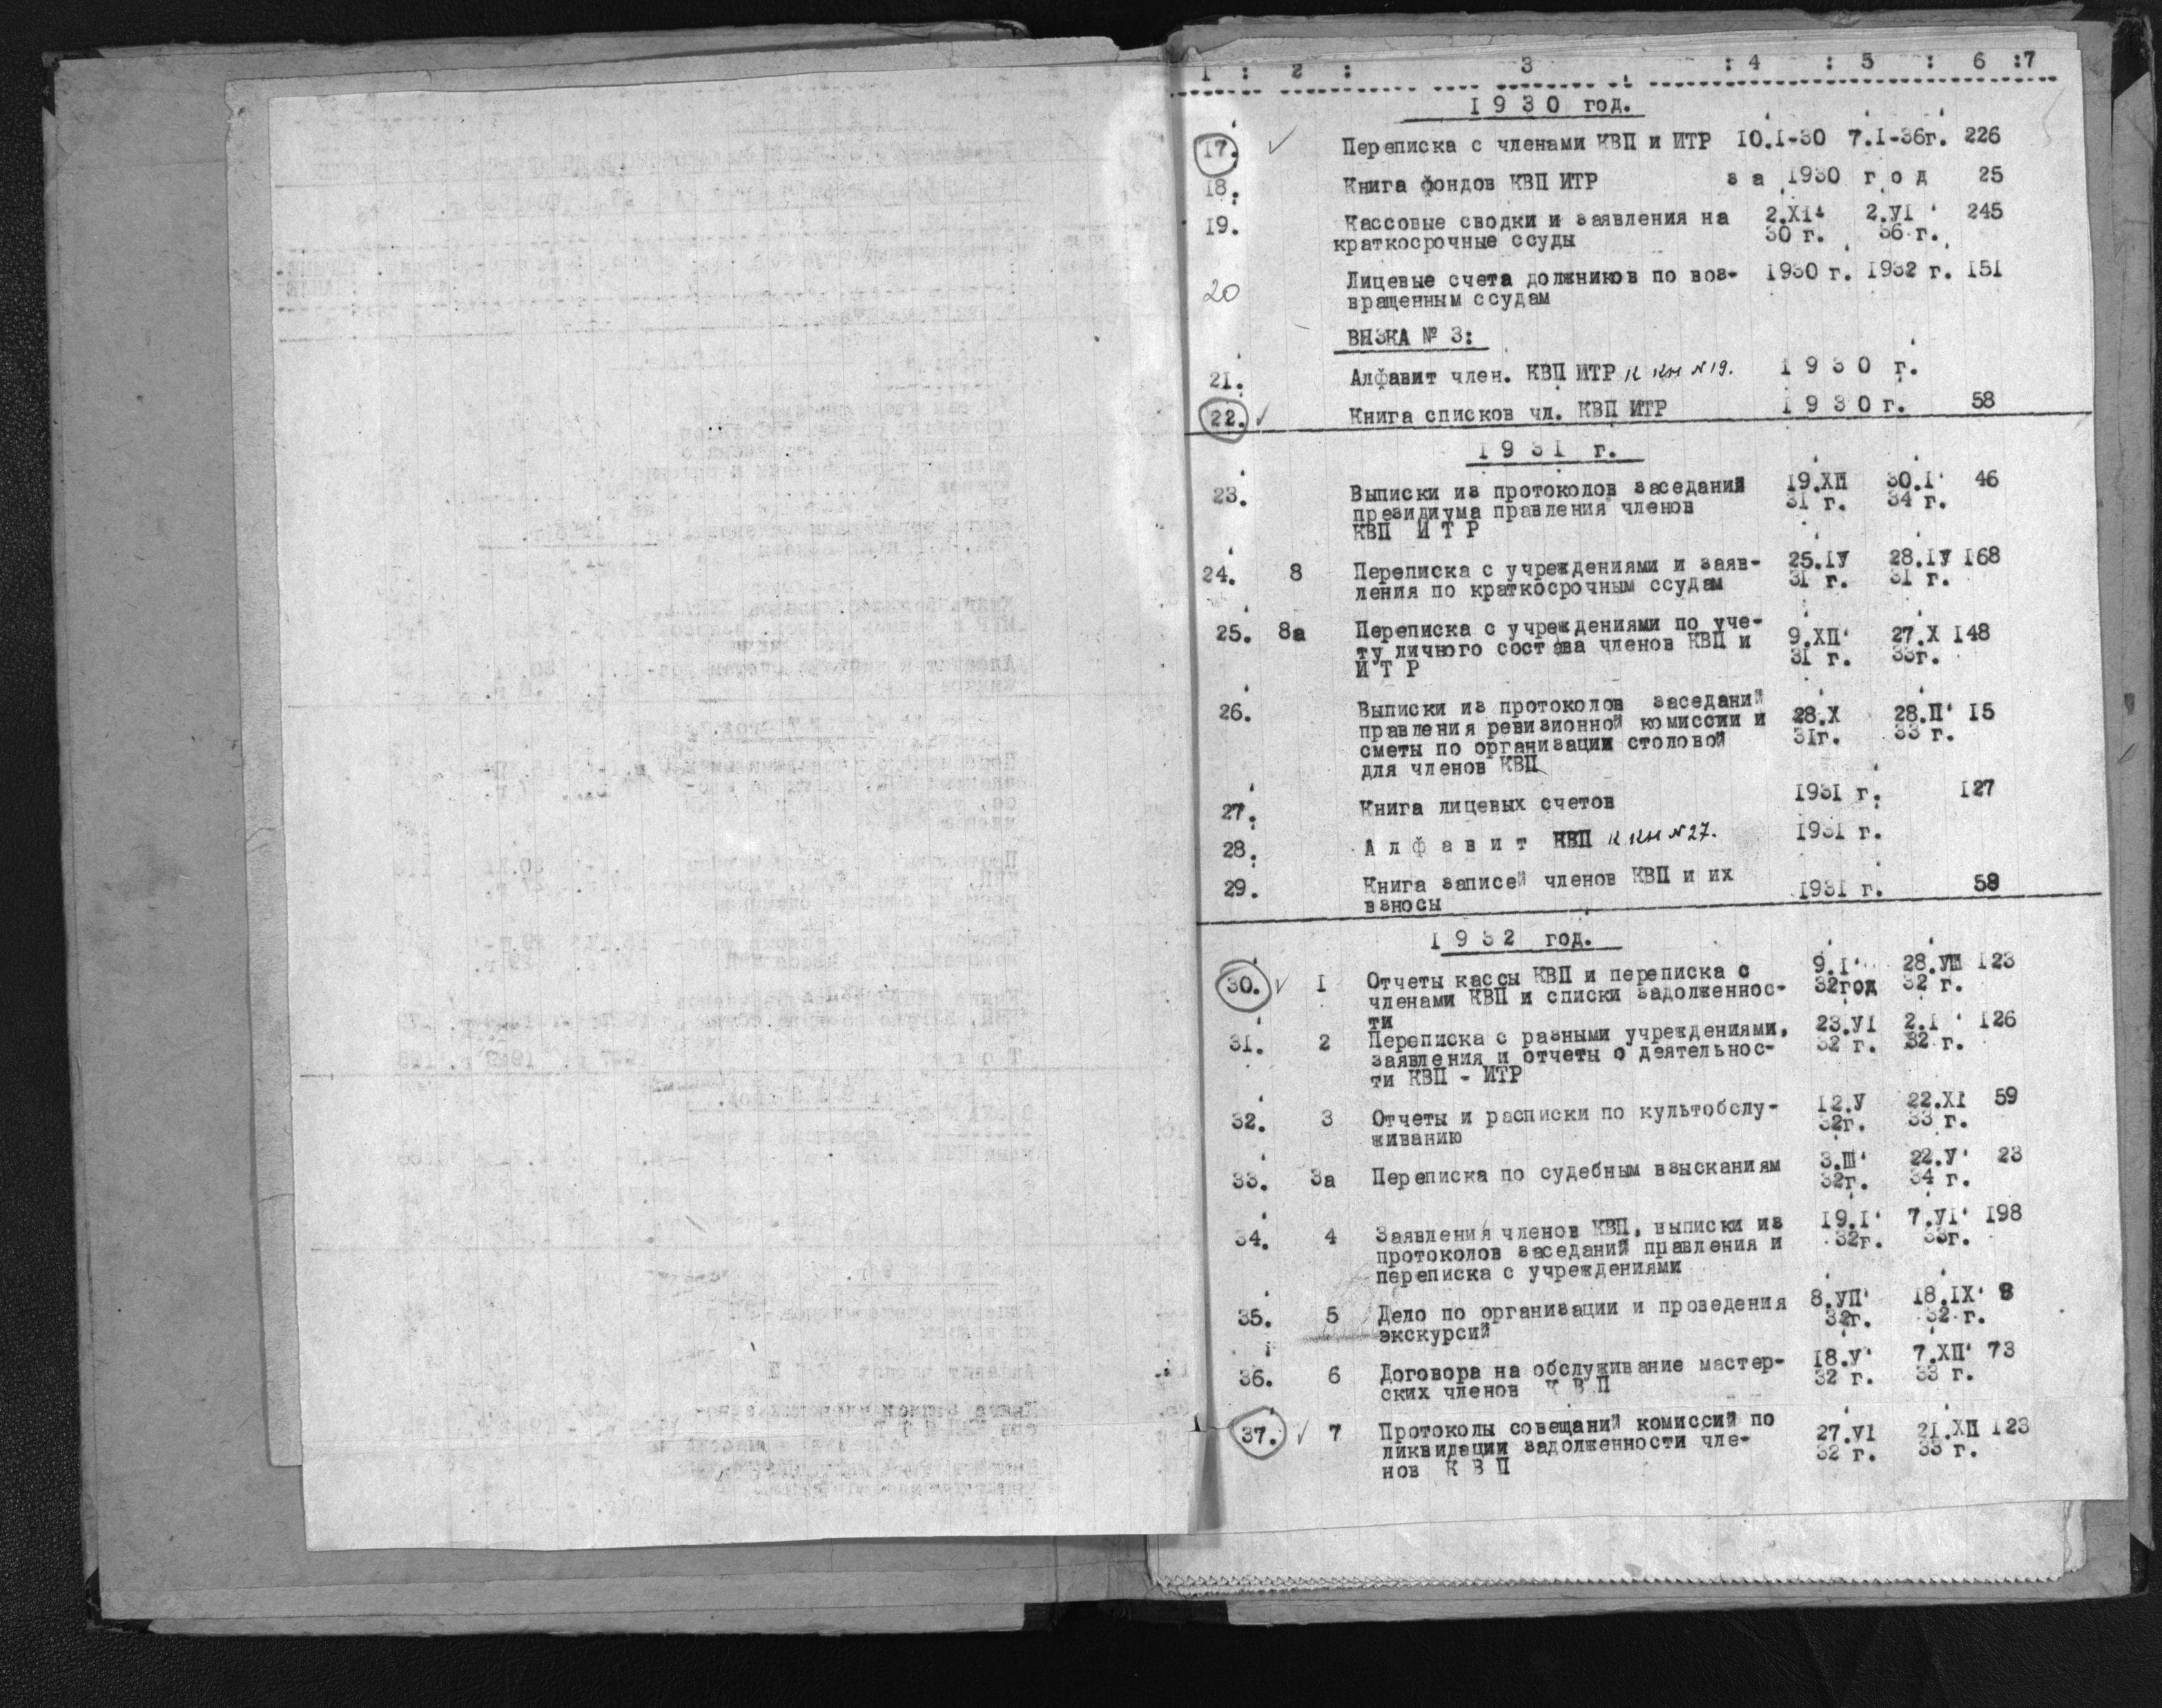 1 : 2 : 3 : 4 : 5 : 6 :7
1 9 3 0 год.
17. Переписка с членами КВП и ИТР 10.I-30 7.I-36г. 226
18. Книга фондов КВП ИТР за 1930 год 25
19. Кассовые сводки и заявления на 2.XI 2.УI 245
краткосрочные ссуды 30 г. 36 г.
20 Лицевые счета должников по воз- 1930 г. 1932 г. 151
вращенным ссудам
ВЯЗКА № 3:
21. Алфавит член. КВП ИТР к кн №19. 1 9 3 0 г.
22. Книга списков чл. КВП ИТР 1 9 3 0 г. 58
1 9 3 1 г.
23. Выписки из протоколов заседаний 19.XII 30.I 46
президиума правления членов 31 г. 34 г.
КВП И Т Р
24. 8 Переписка с учреждениями и заяв- 25.IУ 28.IУ 168
ления по краткосрочным ссудам 31 г. 31 г.
25. 8а Переписка с учреждениями по уче-
ту личного состава членов КВП и 9.XП 27.X 148
И Т Р 31 г. 33г.
26. Выписки из протоколов заседаний
правления ревизионной комиссии и 28.X 28.П 15
сметы по организации столовой 31г. 33 г.
для членов КВП
27. Книга лицевых счетов 1931 г. 127
28. А л ф а в и т КВП к кн №27. 1931 г.
29. Книга записей членов КВП и их 1931 г. 58
взносы
1 9 3 2 год.
30. 1 Отчеты кассы КВП и переписка с 9.I 28.УШ 123
членами КВП и списки задолженнос- 32год 32 г.
ти
31. 2 Переписка с разными учреждениями, 23.УI 2.I 126
заявления и отчеты о деятельнос- 32 г. 32 г.
ти КВП - ИТР
32. 3 Отчеты и расписки по культобслу- 12.У 22.XI 59
живанию 32г. 33 г.
33. 3а Переписка по судебным взысканиям 3.Ш 22.У 23
32г. 34 г.
34. 4 Заявления членов КВП, выписки из 19.I 7.УI 198
протоколов заседаний правления и 32г. 33г.
переписка с учреждениями
35. 5 Дело по организации и проведения 8.УП 18.IX 8
экскурсий 32г. 32 г.
36. 6 Договора на обслуживание мастер- 18.У 7.XП 73
ских членов К В П 32 г. 33 г.
37. 7 Протоколы совещаний комиссий по
ликвидации задолженности чле- 27.УI 21.XП 123
нов К В П 32 г. 33 г.